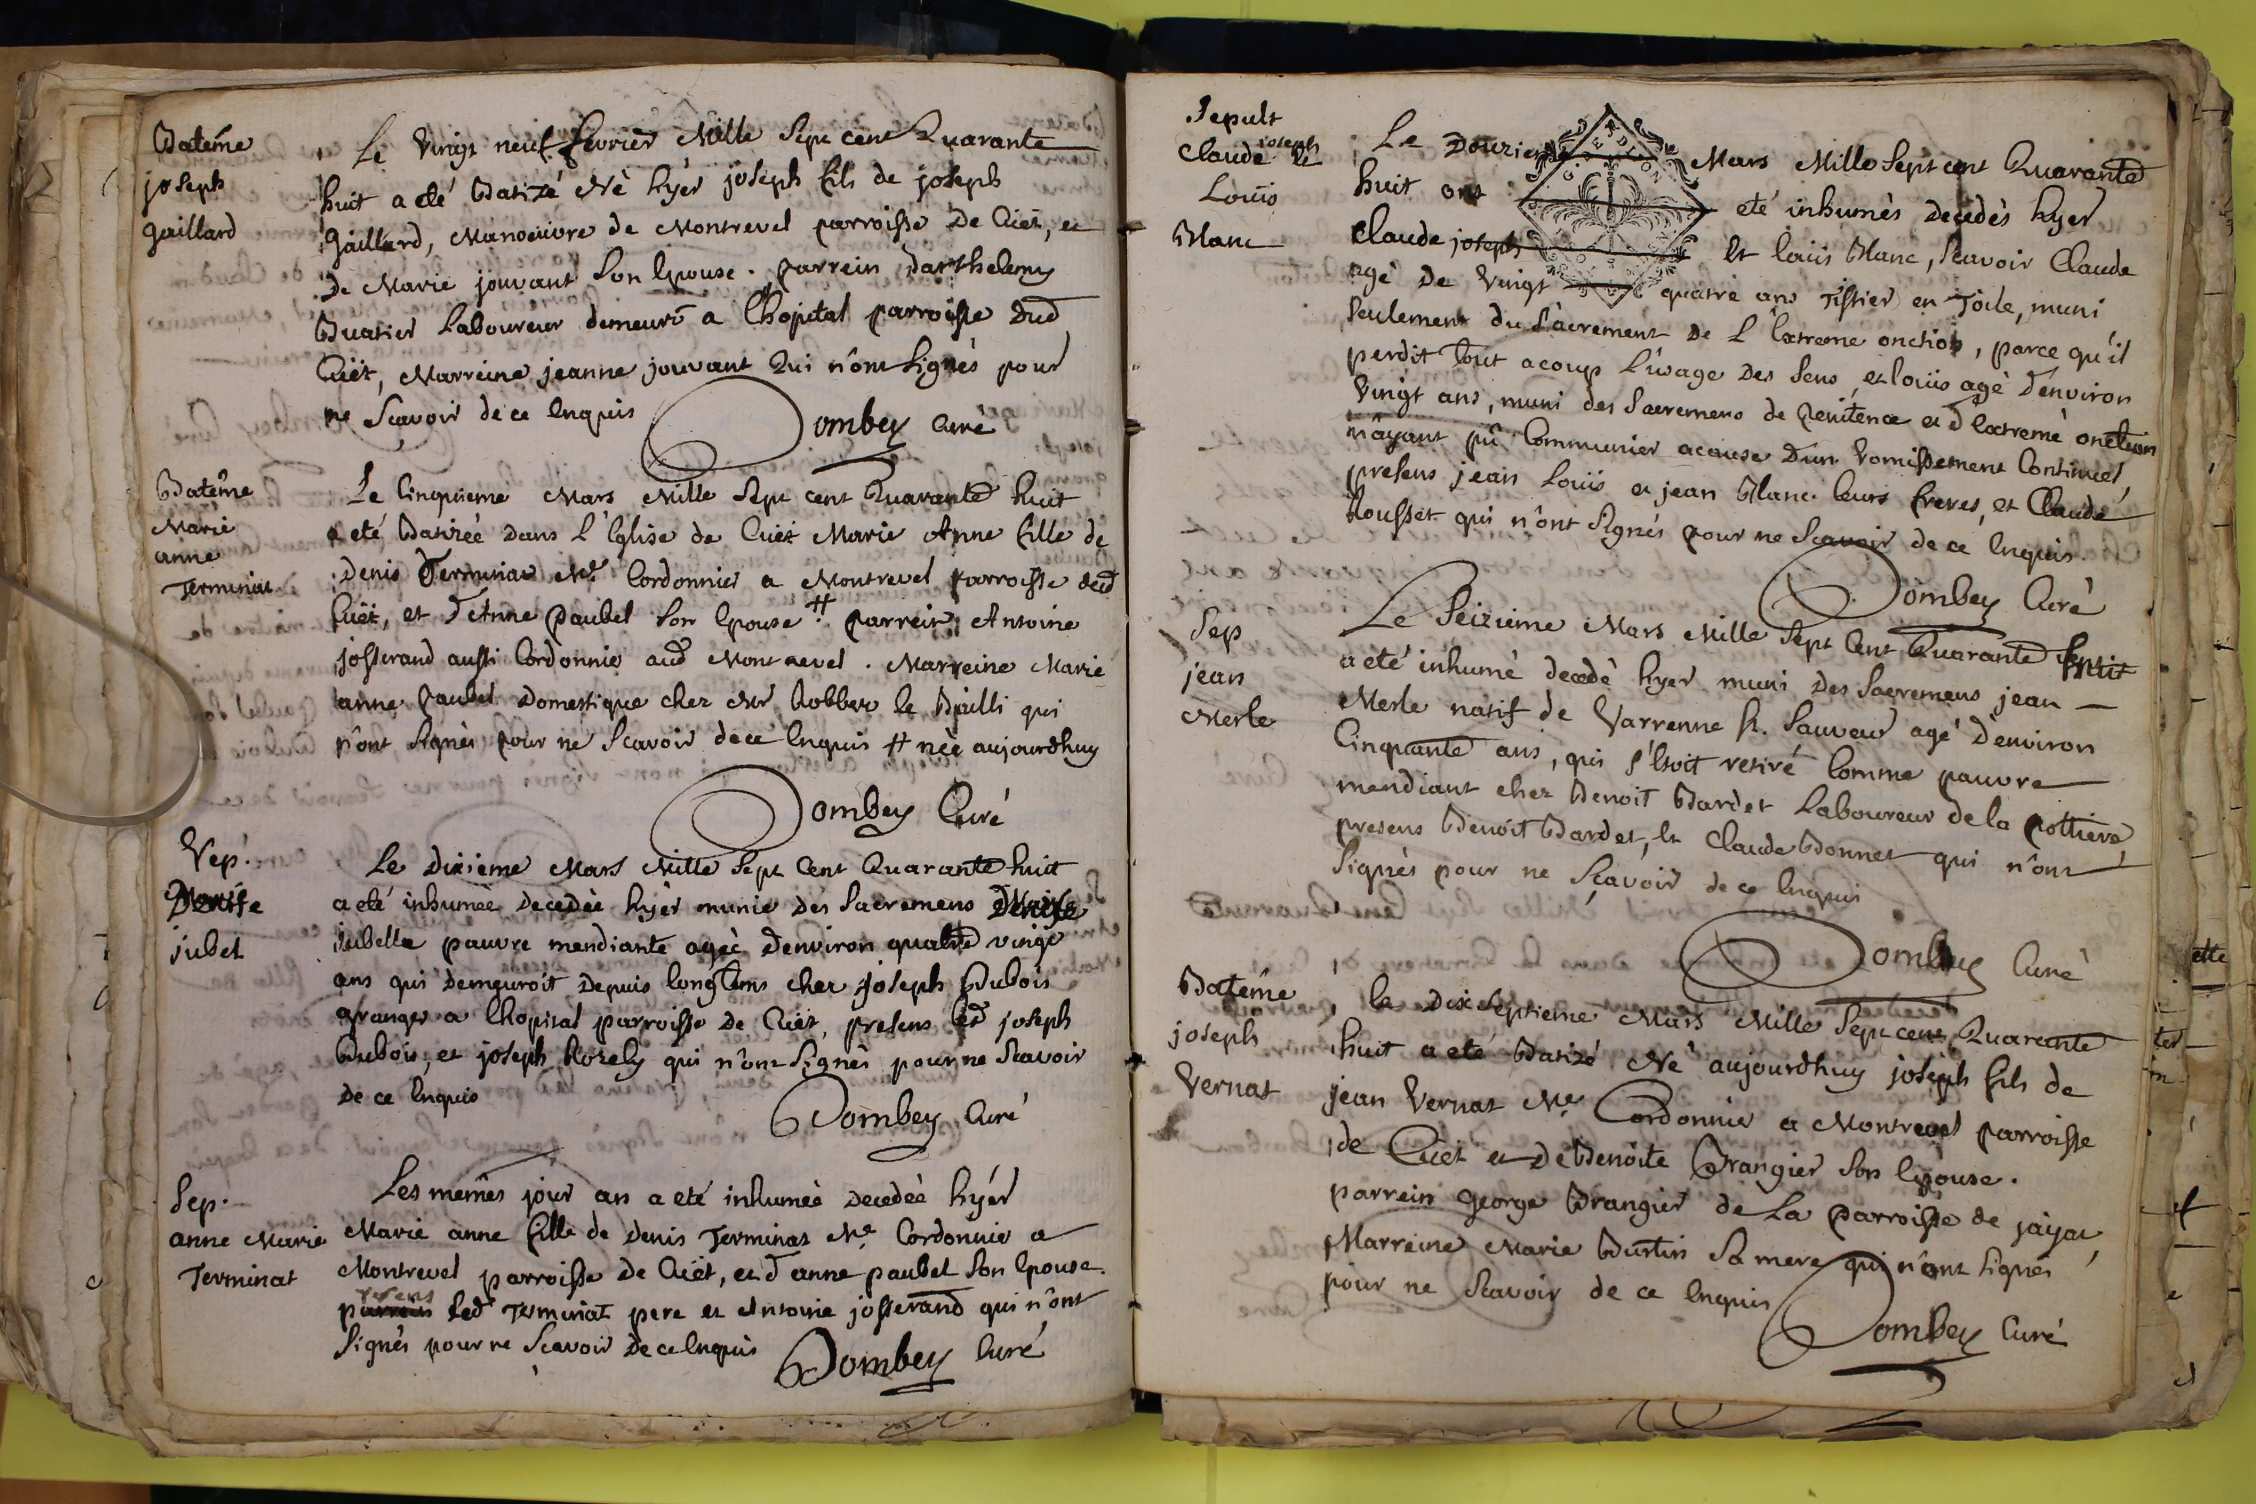 Batême
joseph
gaillard
Le Vingt neuf fevrier Mille Sept cent Quarante
huit a eté Batizé Né hyèr joseph fils de joseph
gaillard, Manoeuvre de Montrevel parroisse De Cuët, et
De Marie jouvant Son Epouse. parrein Barthelemy
Buatier Laboureur demeurt a Lhopital parroisse Dud
Cuët, Marreine jeanne jouvant Qui n'ont Signès pour
ne Scavoir de ce Enquis Dombey Curé
Batême
Marie
anne
Terminat
Le Cinquieme Mars Mille Sept cent Quarante huit
a eté Batizèe Dans L'Eglise de Cuët Marie Anne fille de
Denis Terminat Me Cordonnier a Montrevel parroisse dud
Cuët, et d'Anne paubel Son Epouse # parrein Antoine
josserand aussi Cordonnie aud Montrevel. Marreine Marie
anne paubel Domestique chez Mr Robbet le Bailli qui
n'ont Signès pour ne Scavoir de ce Enquis # nèe aujourdhuy
Dombey Curé
Sep.
Denise
jubel
Le Dixieme Mars Mille Sept Cent Quarante huit
a eté inhumèe Decedèe hyèr munie des Sacremens Denise
jubelle pauvre mendiante agèe d'environ quatre vingt
ans qui demeuroit Depuis longtems chez joseph Dubois
granger a Lhopital parroisse De Cuët, presens led joseph
Dubois, et joseph Rozely qui n'ont Signès pour ne Scavoir
De ce Enquis
Dombey Curé
Sep.
anne Marie
Terminat
Les mêmes jour an a eté inhumèe Decedèe hyér
Marie anne fille de Denis Terminat Me Cordonnie a
Montrevel parroisse De Cuët, et d'anne paubel Son Epouse.
presens led Terminat pere et Antoine josserand qui n'ont
Signès pour ne Scavoir De ce Enquis Dombey Curé
Sepult
Claude joseph et
Loüis
Blanc
Le Douzieme Mars Mille Sept cent Quarante
huit ont eté inhumès Decedès hyer
Claude joseph et Loüis Blanc, Scavoir Claude
agè De Vingt quatre ans Tissier en Toile, muni
Seulement du Sacrement De L'Extreme onction, parce qu'il
perdit Tout acoup L'usage Des Sens, et loüis agè d'environ
Vingt ans, muni des Sacremens de penitence et d'Extremè onction
n'ayant pû Communier acause D'un Vomissement Continuel,
presens jean Loüis et jean Blanc leurs freres, et Claude
Rousset qui n'ont Signès pour ne Scavoir de ce Enquis.
Dombey Curé
Sep
jean
Merle
Le Seizieme Mars Mille Sept Cent Quarante huit
a eté inhumè decedè hyer muni Des Sacremens jean
Merle natif de Varrenne St. Sauveur agé d'environ
Cinquante ans, qui s'Etoit retiré Comme pauvre
mendiant chez Benoit Bardet Laboureur de la pottiere
presens Benoit Bardet, et Claude Bonnet qui n'ont
Signès pour ne Scavoir de ce Enquis
Dombey Curé
Batême
joseph
Vernat
le Dix Septieme Mars Mille Sept cent Quarante
huit a eté Batizé Né aujourdhuy joseph fils de
jean Vernat Me Cordonnier a Montrevel parroisse
de Cuët et De Benoite Brangier Son Epouse.
parrein george Brangier de La parroisse de jayat
Marreine Marie Burtin Sa mere qui n'ont Signès
pour ne Scavoir de ce Enquis
Dombey Curé